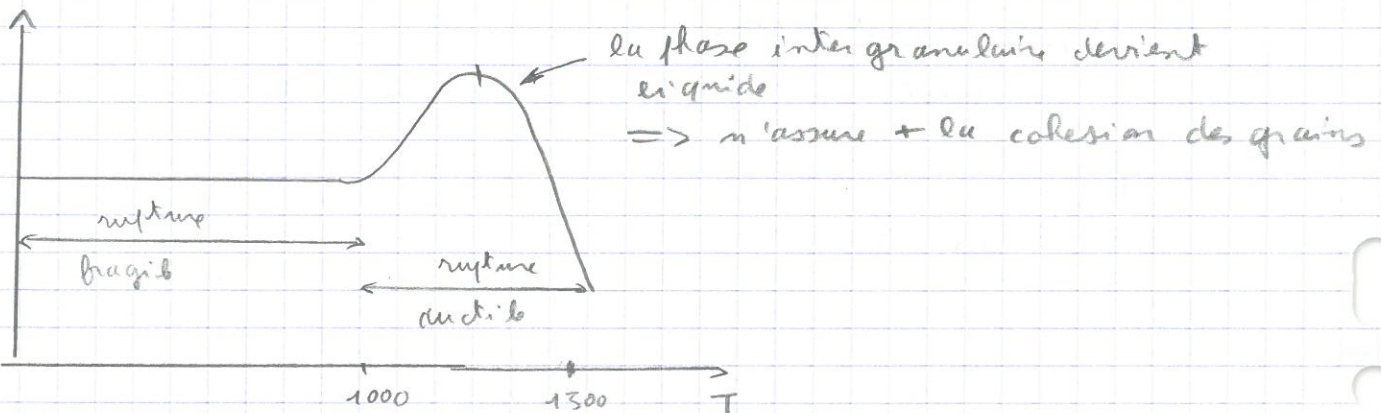 la phase intergranulaire devient
liquide
=> n'assure + la cohesion des grains
rupture
fragile
rupture
ductile
1000 1300 T